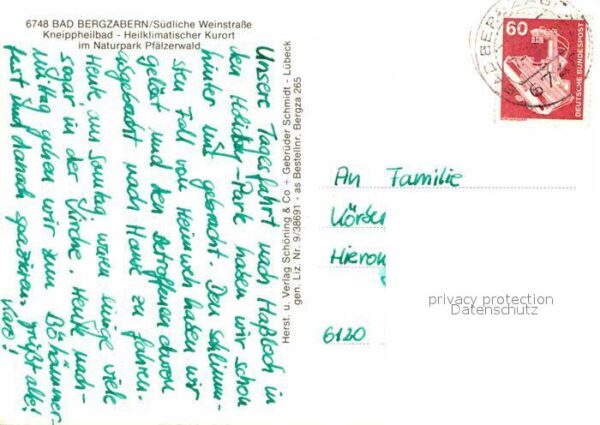 6748 BAD BERGZABERN/Südliche Weinstraße
Kneippheilbad - Heilklimatischer Kurort
im Naturpark Pfälzerwald
Unsere Tagesfahrt nach Haßloch in
den Holiday-Park haben wir schon
hinter uns gebracht. Den schlimm-
sten Fall von Heimweh haben wir
gelöst und den Betroffenen davon
nach Hause zu fahren.
Heute am Sonntag waren einige viele
sogar in der Kirche. Heute nach-
mittag gehen wir zum Böhämmer-
fest und danach spazieren. grüßt alle!
Herst. u. Verlag Schöning & Co + Gebrüder Schmidt - Lübeck
gen. Liz. Nr. 9/38691 - as Bestellnr. Bergza 265
60
DEUTSCHE BUNDESPOST
An Familie
Hieron
6120
privacy protection
Datenschutz